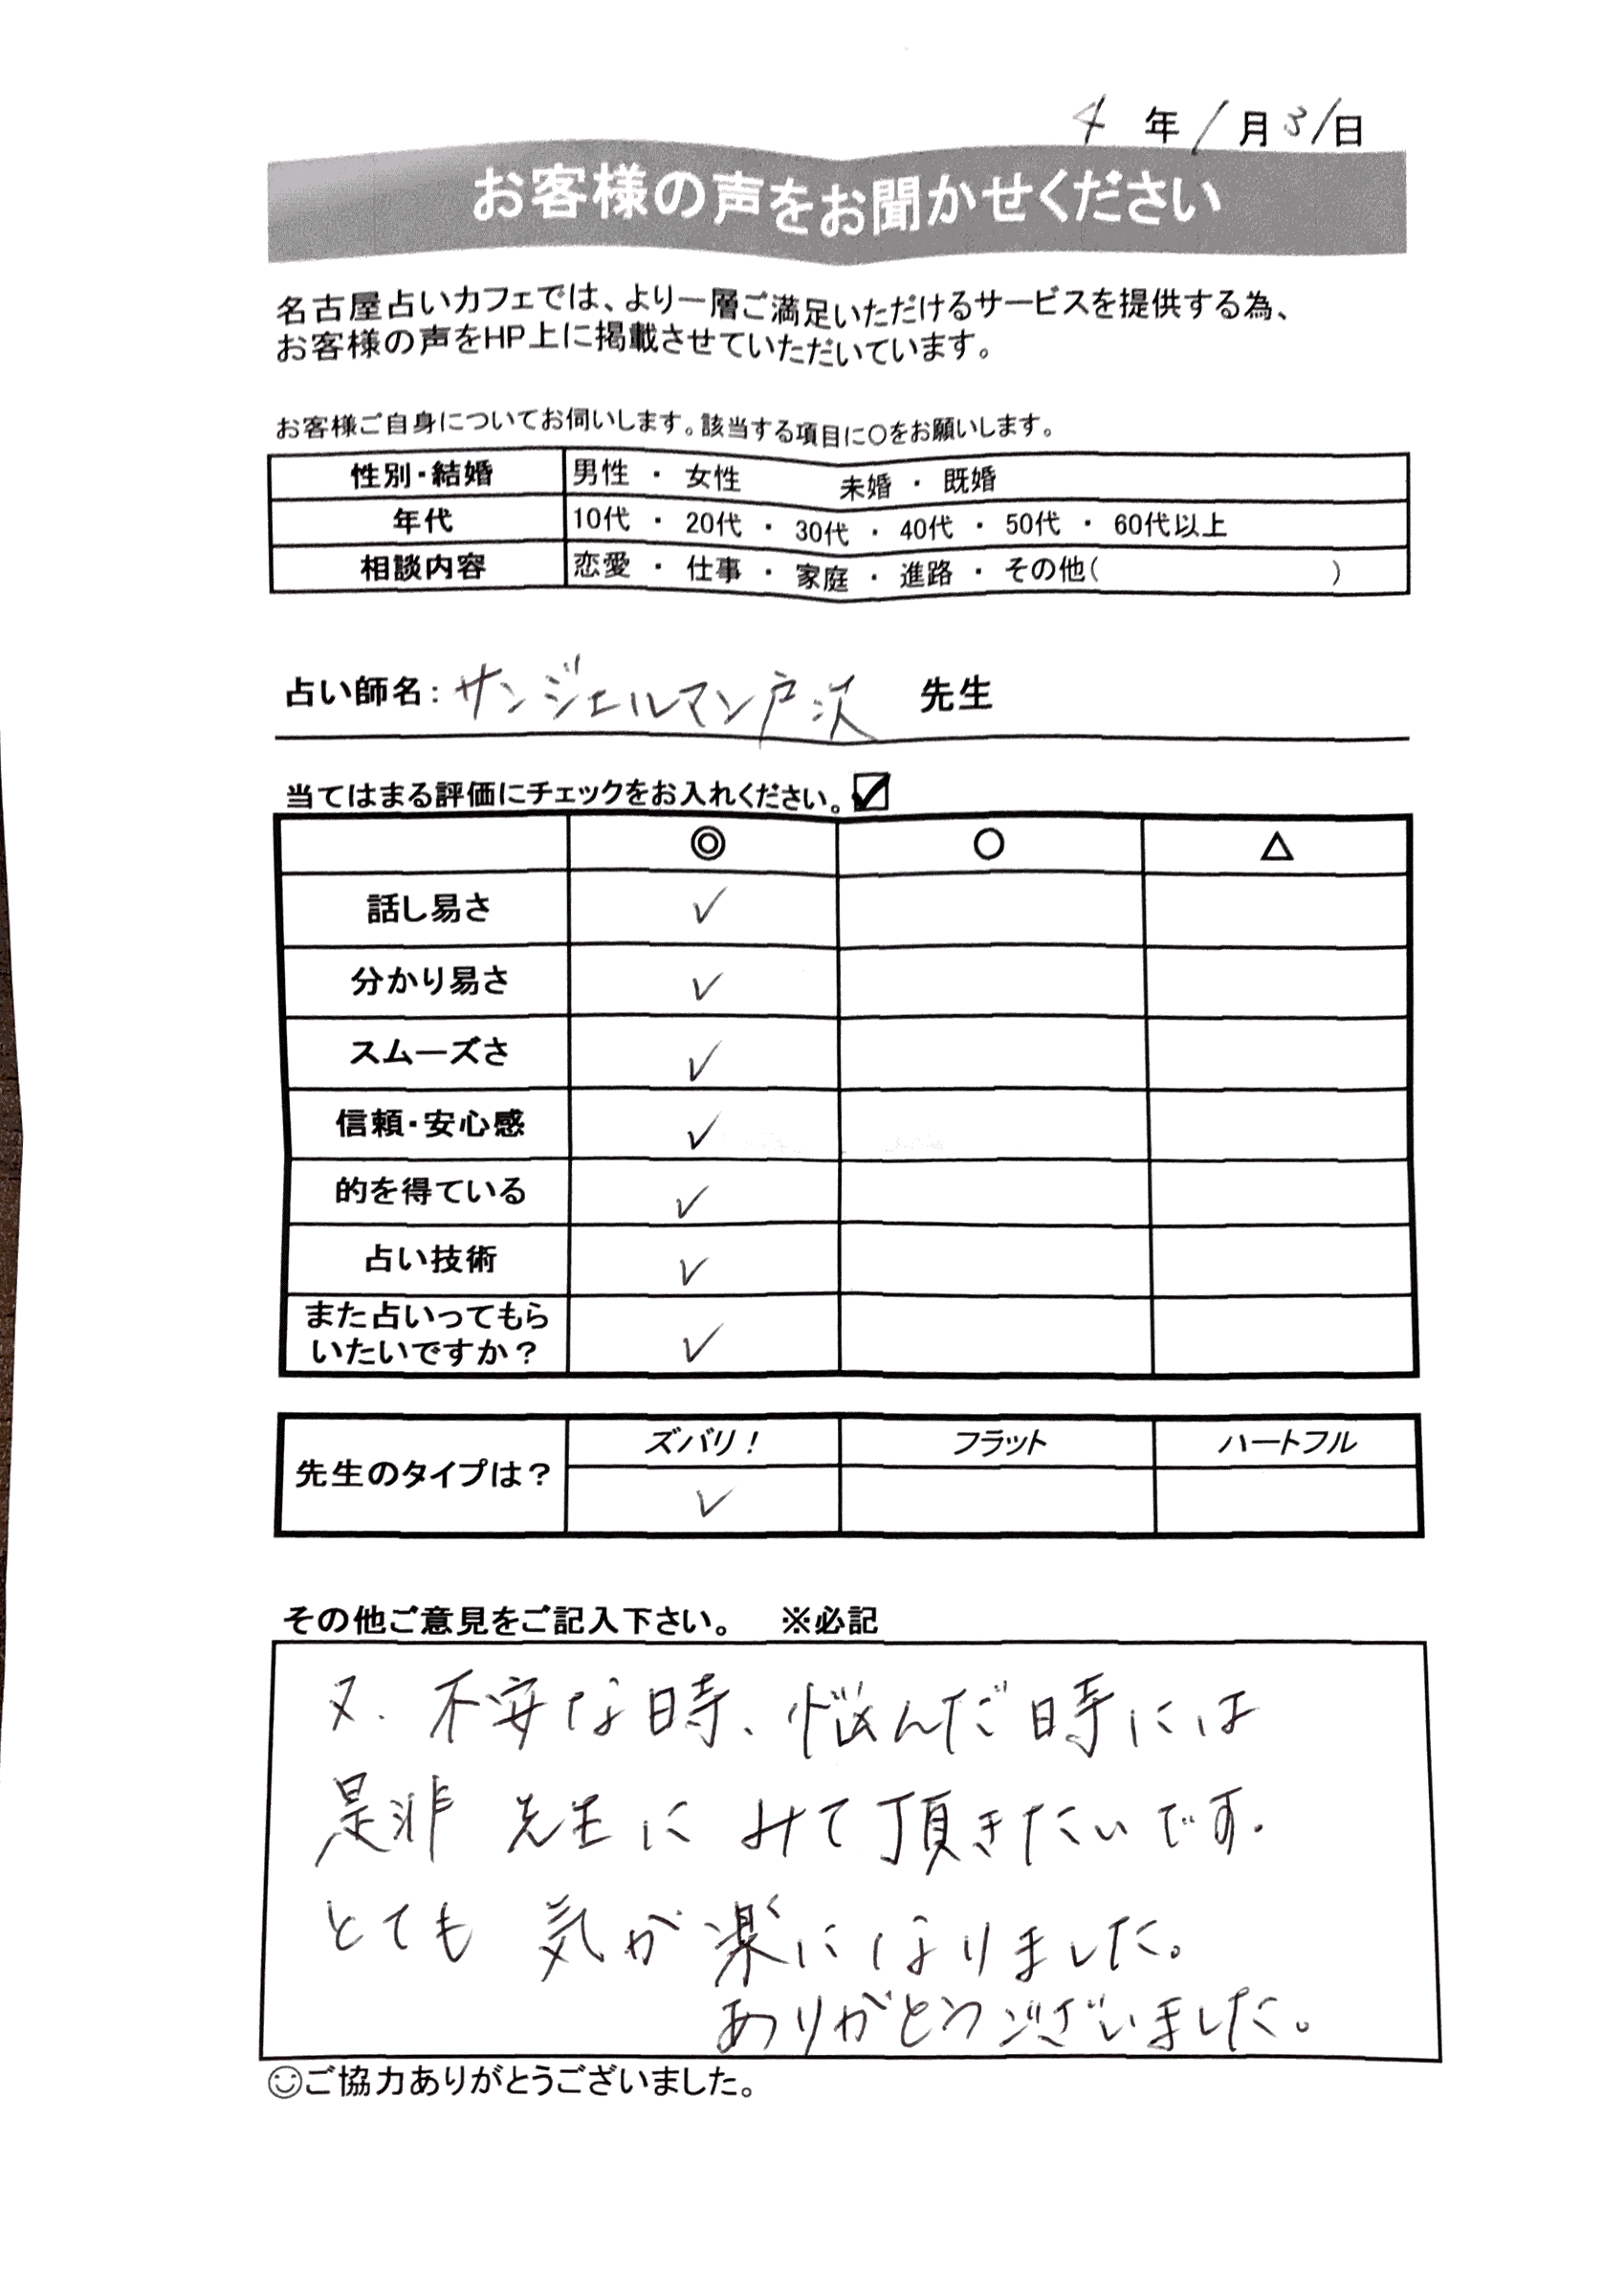 4年1月31日
お客様の声をお聞かせください
名古屋占いカフェでは、より一層ご満足いただけるサービスを提供する為、
お客様の声をHP上に掲載させていただいています。
お客様ご自身についてお伺いします。該当する項目に○をお願いします。
性別・結婚 男性 ・ 女性 未婚 ・ 既婚
年代 10代 ・ 20代 ・ 30代 ・ 40代 ・ 50代 ・ 60代以上
相談内容 恋愛 ・ 仕事 ・ 家庭 ・ 進路 ・ その他( )
占い師名: サンジェルマン戸沢 先生
当てはまる評価にチェックをお入れください。☑
◎ ○ △
話し易さ ✓
分かり易さ ✓
スムーズさ ✓
信頼・安心感 ✓
的を得ている ✓
占い技術 ✓
また占いってもら
いたいですか? ✓
ズバリ! フラット ハートフル
先生のタイプは? ✓
その他ご意見をご記入下さい。 ※必記
又、不安な時、悩んだ時には
是非 先生に みて頂きたいです。
とても 気が楽になりました。
ありがとうございました。
☺ご協力ありがとうございました。